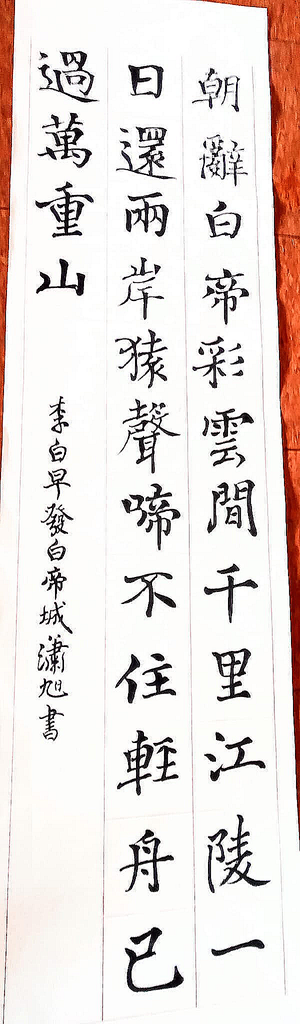 朝辭白帝彩雲間千里江陵一
日還兩岸猿聲啼不住輕舟已
過萬重山
李白早發白帝城瀟旭書